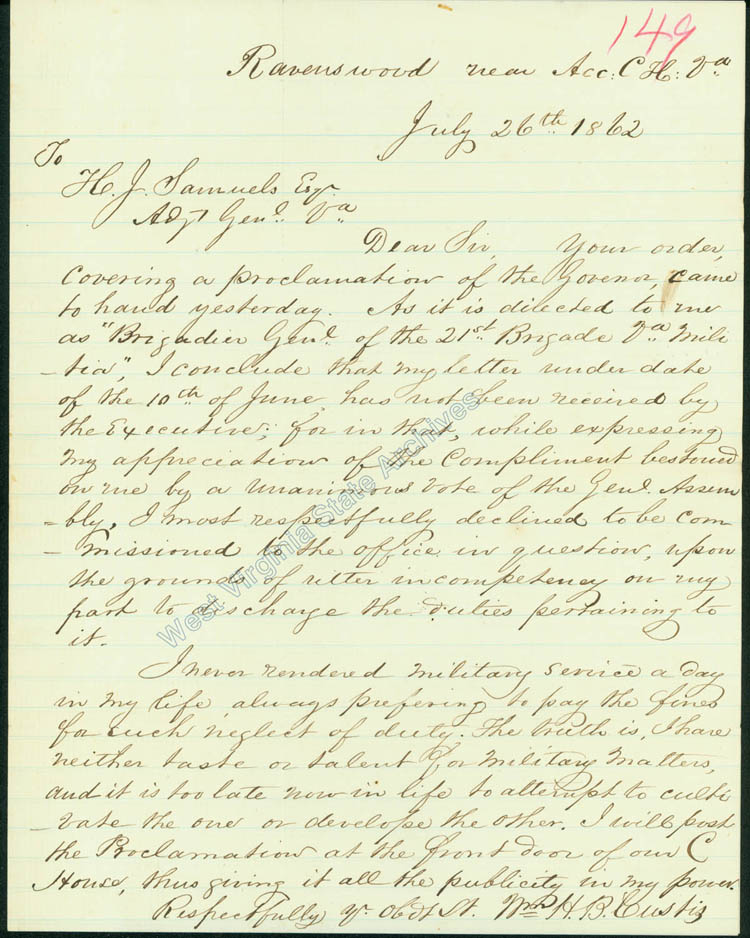 149
Ravenswood near Acc: C H: Va
July 26th 1862
To
H. J. Samuels Esqr.
Adjt Genl. Va
Dear Sir, Your order,
covering a proclamation of the Govenor, came
to hand yesterday. As it is directed to me
as "Brigadier Genl. of the 21st Brigade Va. Mili
-tia", I conclude that my letter under date
of the 10th of June, has not been received by
the Executive; for in that, while expressing
my appreciation of the compliment bestowed
on me by a unanimous vote of the Genl. Assem
-bly, I most respectfully declined to be com
-missioned to the office in question, upon
the grounds of utter incompetency on my
part to discharge the duties pertaining to
it.
I never rendered military service a day
in my life, always prefering to pay the fines
for such neglect of duty. The truth is, I have
neither taste or talent for military matters,
and it is too late now in life to attempt to culti
-vate the one or develope the other. I will post
the Proclamation at the front door of our C
House, thus giving it all the publicity in my power.
Respectfully yr. Obdt St. Wm H. B. Custis
West Virginia State Archives